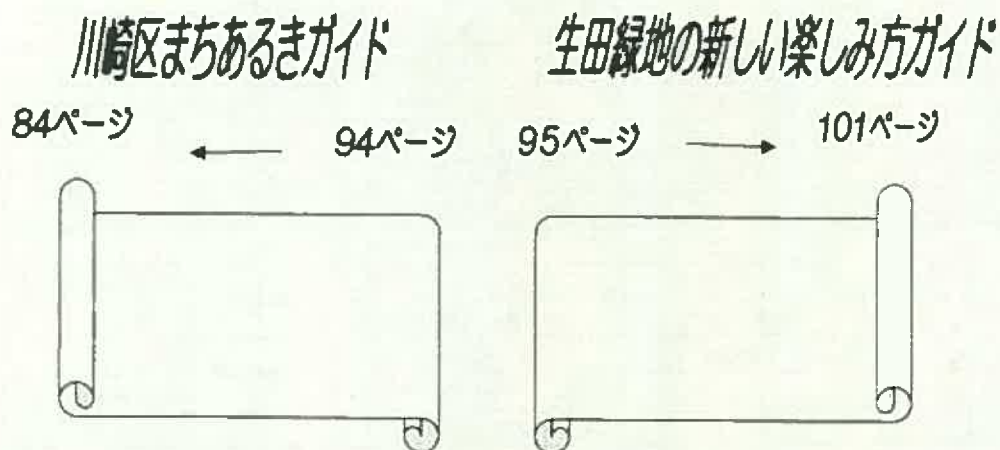 川崎区まちあるきガイド
84ページ ← 94ページ
生田緑地の新しい楽しみ方ガイド
95ページ → 101ページ